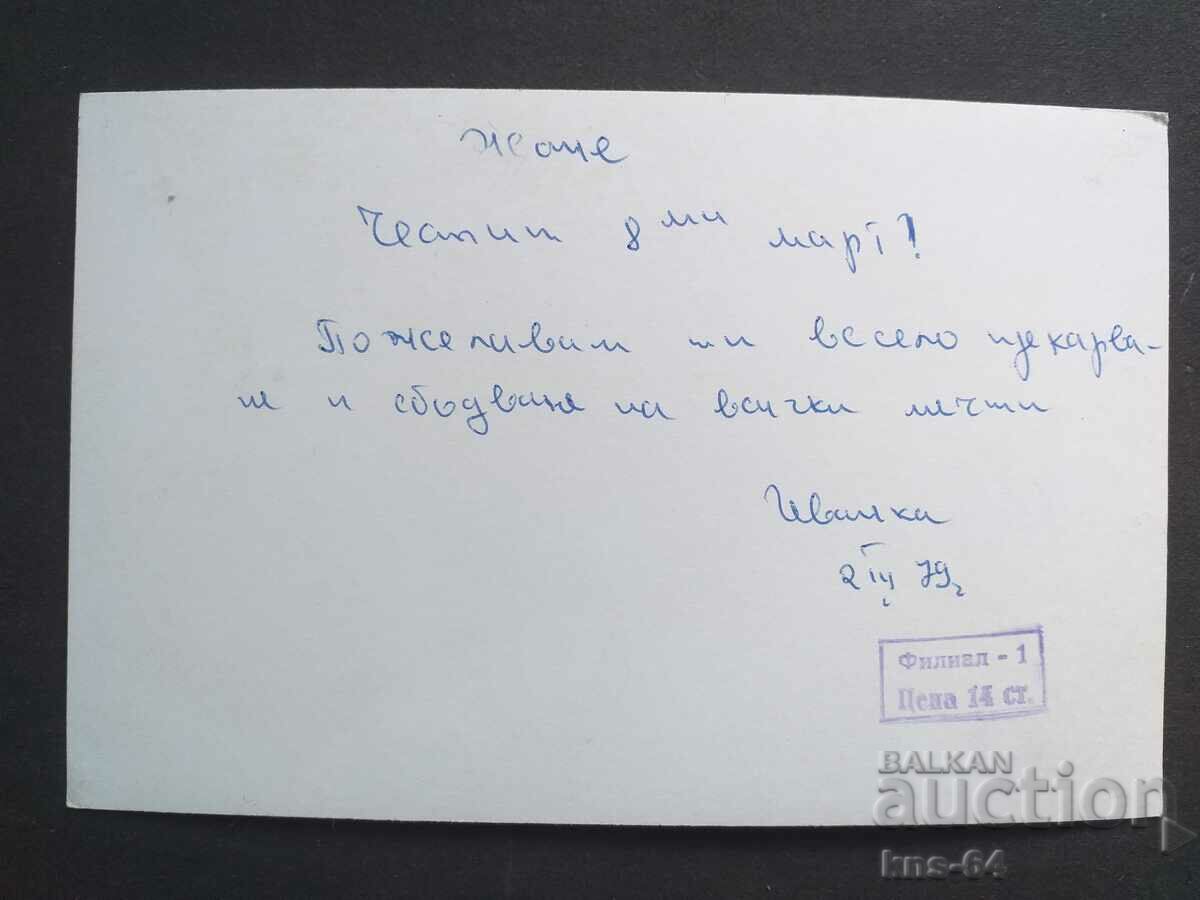 Жоце
Честит 8ми март!
Пожелавам ти весело изкарва-
не и сбодване на всички мечти
Иванка
2 III 79г
Филиал - 1
Цена 14 ст.
BALKAN
auction
kns-64